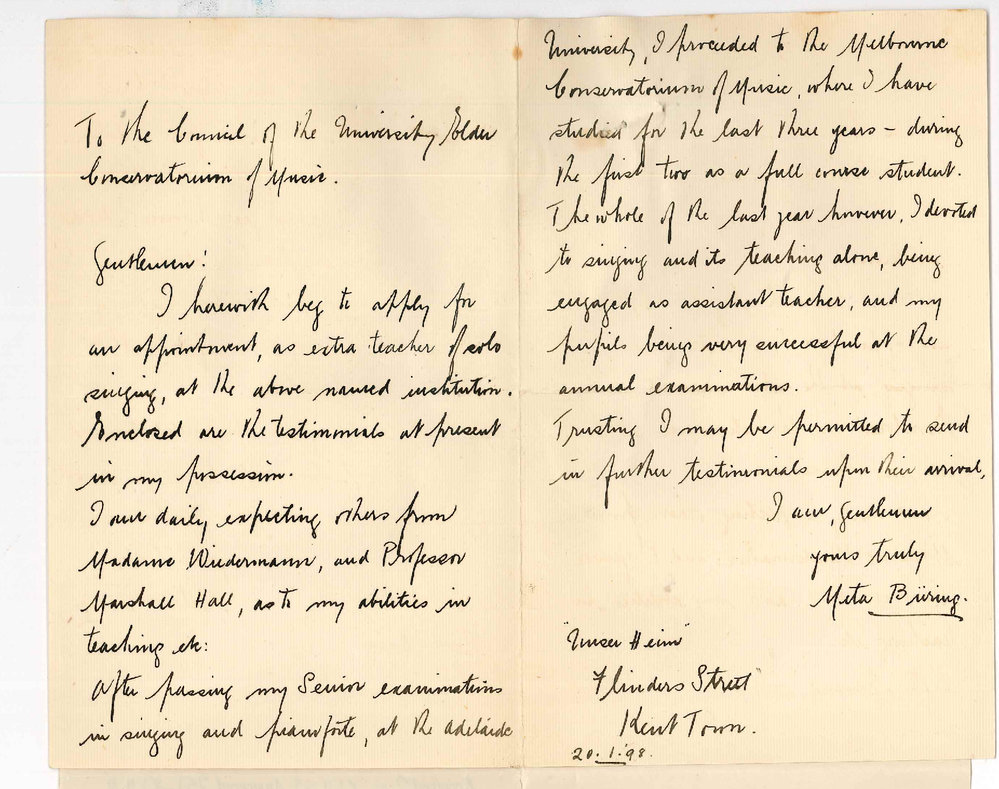 To the Council of the University Elder
Conservatorium of Music.
Gentlemen!
I herewith beg to apply for
an appointment, as extra teacher of solo
singing, at the above named institution.
Enclosed are the testimonials at present
in my possession.
I am daily expecting others from
Madame Wiedermann, and Professor
Marshall Hall, as to my abilities in
teaching etc:
After passing my Senior examinations
in singing and pianoforte, at the Adelaide
University, I proceeded to the Melbourne
Conservatorium of Music, where I have
studied for the last three years – during
the first two as a full course student.
The whole of the last year however, I devoted
to singing and its teaching alone, being
engaged as assistant teacher, and my
pupils being very successful at the
annual examinations.
Trusting I may be permitted to send
in further testimonials upon their arrival,
I am, Gentlemen
yours truly
Meta Büring.
"Unser Heim"
Flinders Street"
Kent Town.
20.1.'98.